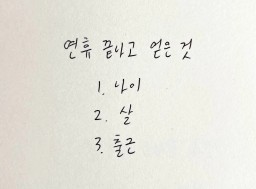 연휴 끝나고 얻은 것
1. 나이
2. 살
3. 출근